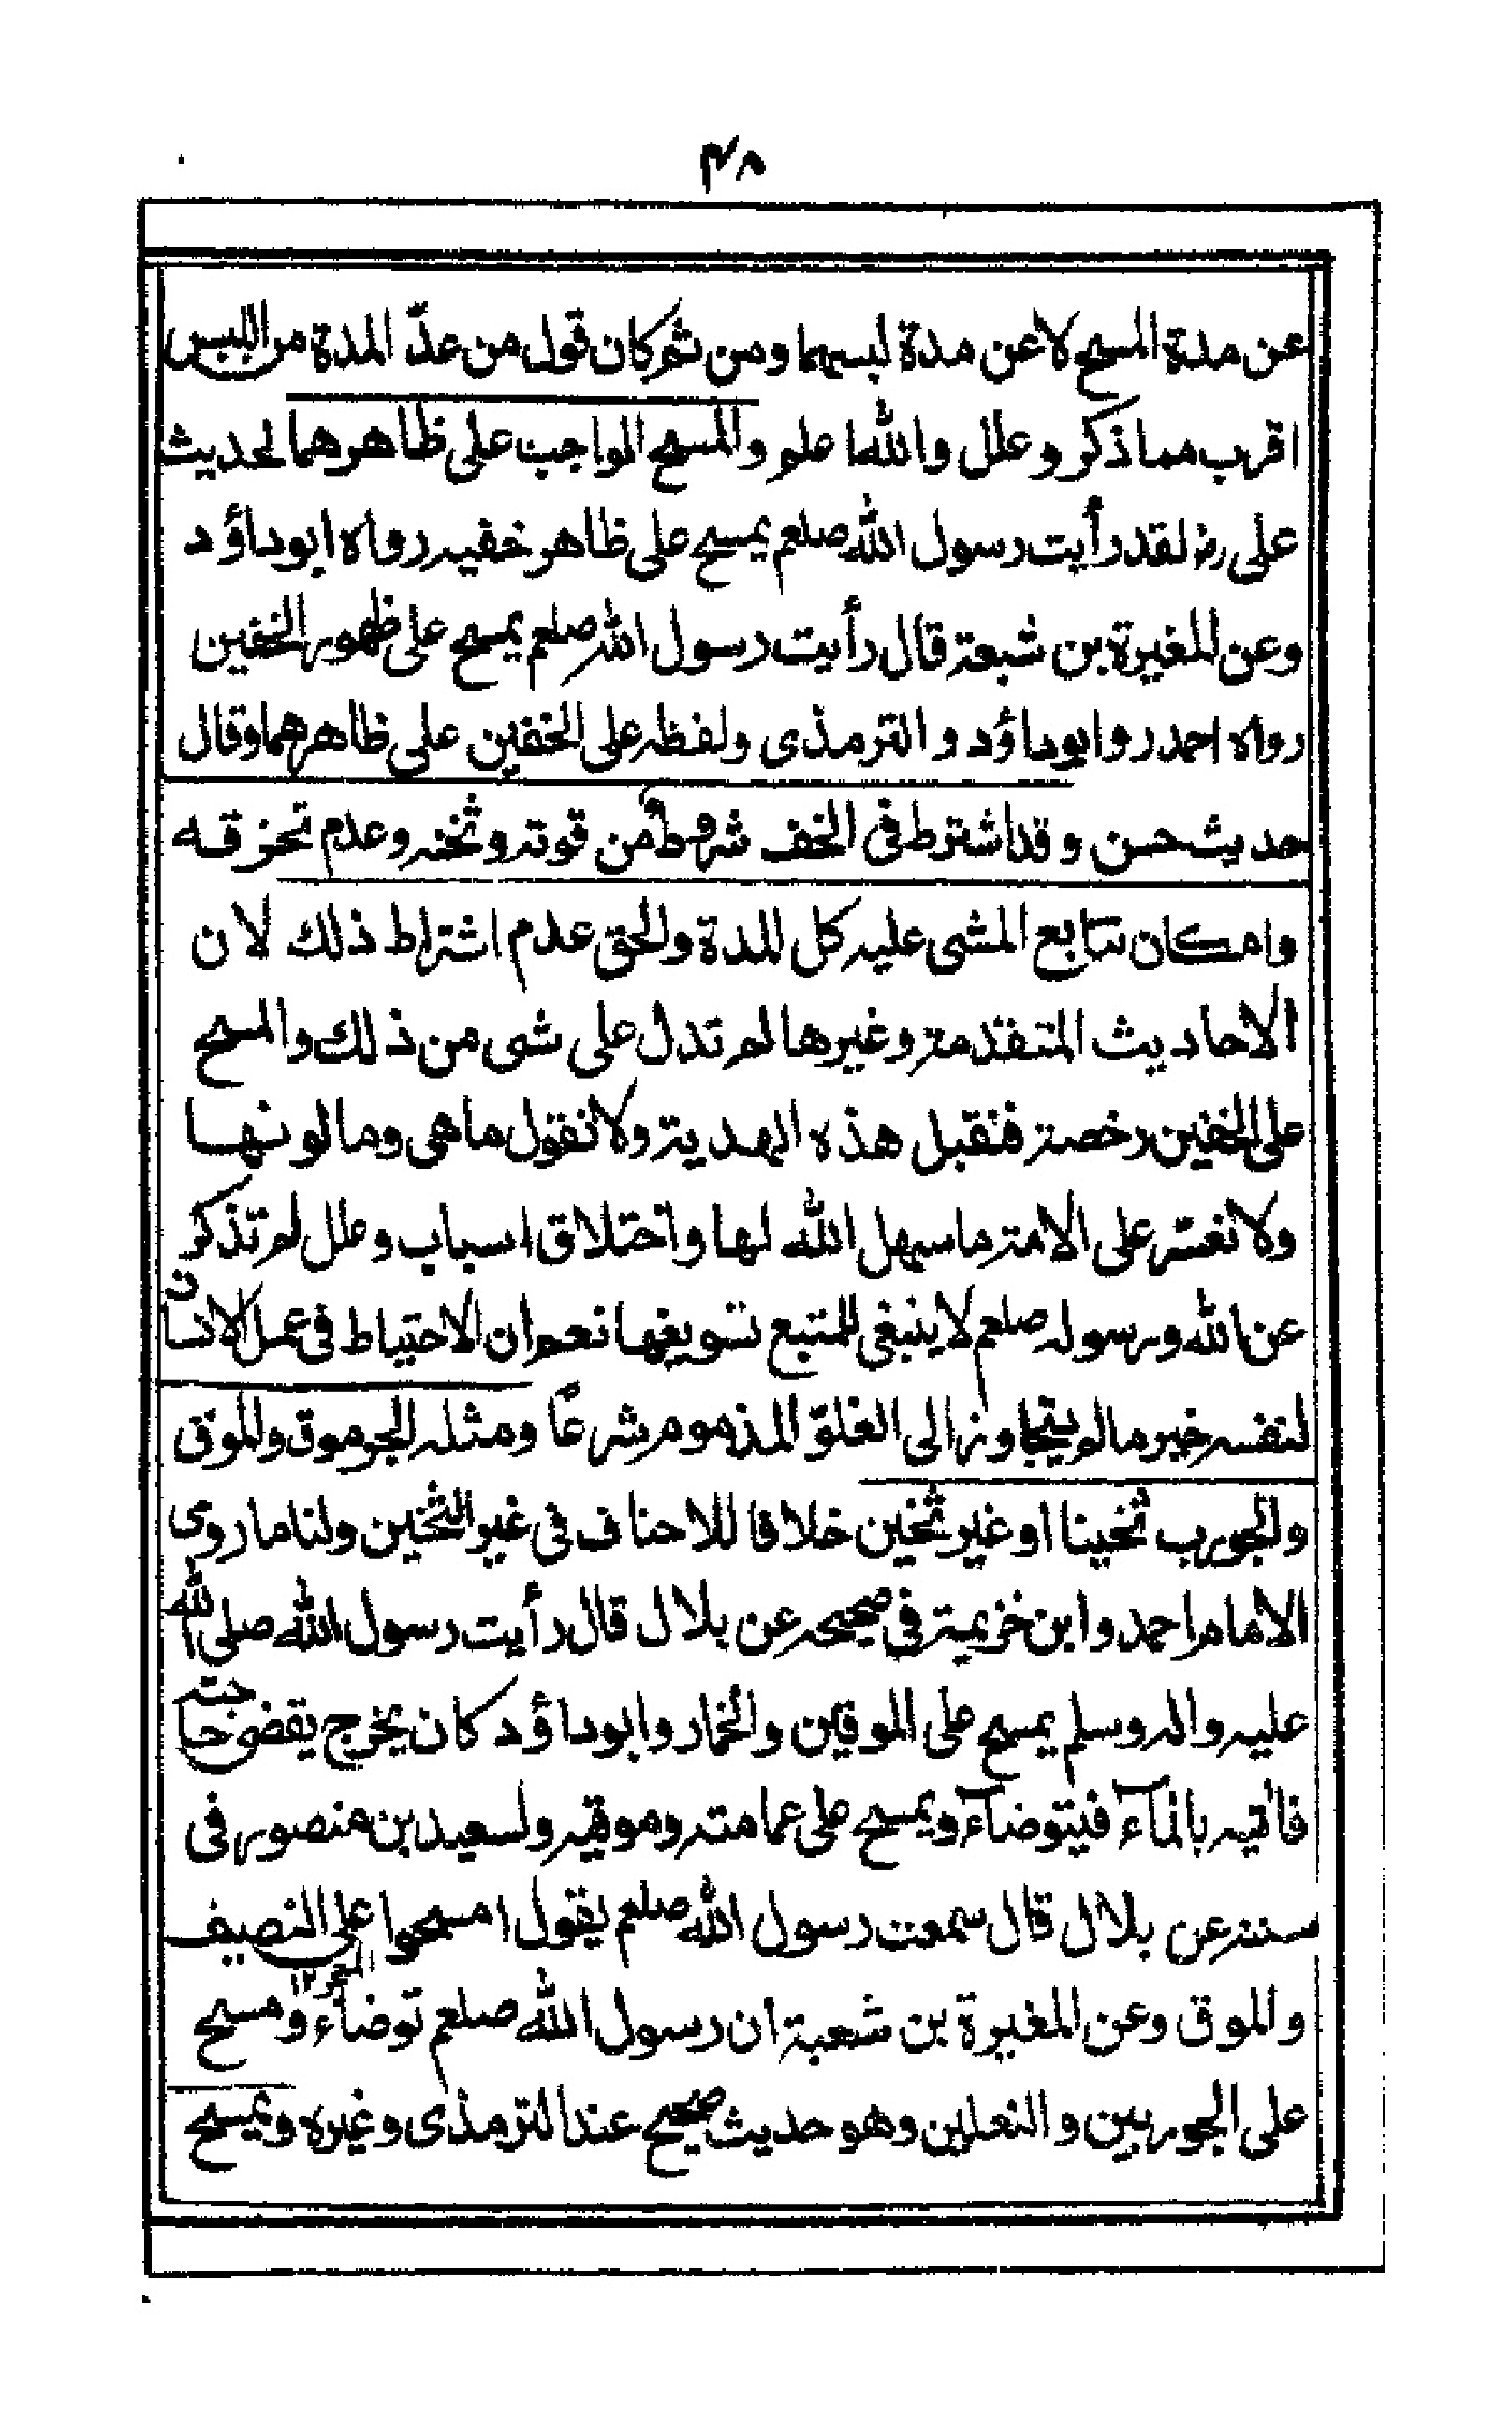 ۴۸
عن مدة المسح لا عن مدة لبسهما ومن ثم كان قول من عدّ المدة من اللبس
اقرب مما ذكر وعلل والله اعلم والمسح الواجب على ظاهرهما لحديث
على رض لقد رأيت رسول الله صلعم يمسح على ظاهر خفيه رواه ابوداؤد
وعن المغيرة بن شبعة قال رأيت رسول الله صلعم يمسح على ظهور الخفين
رواه احمد وابوداؤد والترمذى ولفظه على الخفين على ظاهرهما وقال
حديث حسن وقد اشترط فى الخف شروط من قوته وثخنه وعدم تخرقه
وامكان تتابع المشى عليه كل المدة والحق عدم اشتراط ذلك لان
الاحاديث المتقدمة وغيرها لم تدل على شى من ذلك والمسح
على الخفين رخصة فنقبل هذه الهدية ولا نقول ماهى وما لونها
ولا نعسّر على الامة ما سهل الله لها واختلاق اسباب وعلل لم تذكر
عن الله ورسوله صلعم لا ينبغى للمتبع تسويغها نعم ان الاحتياط فى عمل الانسان
لنفسه خير مالم يتجاوز الى الغلوّ المذموم شرعًا ومثله الجرموق والموق
والجورب ثخينا او غير ثخين خلافا للاحناف فى غير الثخين ولنا ما روى
الامام احمد وابن خزيمة فى صحيحه عن بلال قال رأيت رسول الله صلى الله
عليه واله وسلم يمسح على الموقين والخمار وابوداؤد كان يخرج يقضى حاجته
فاتيه بالمآء فيتوضآء ويمسح على عمامته وموقيه ولسعيد بن منصور فى
سننه عن بلال قال سمعت رسول الله صلعم يقول امسحوا على النصيف
والموق وعن المغيرة بن شعبة ان رسول الله صلعم توضاء ومسح
على الجوربين والنعلين وهو حديث صحيح عند الترمذى وغيره ويمسح